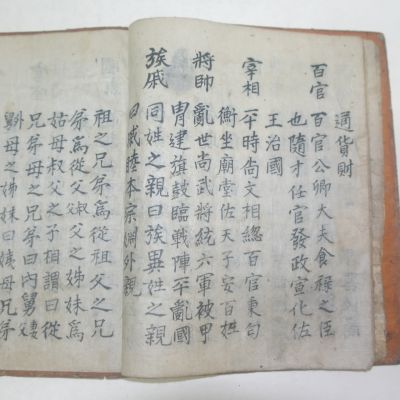 通貨財
百官 百官公卿大夫食祿之臣
也隨才任官發政宣化佐
王治國
宰相 平時尚文相總百官秉勻
衡坐廟堂佐天子安百姓
將帥 亂世尚武將統六軍被甲
冑建旗鼓臨戰陣平亂國
族戚 同姓之親曰族異姓之親
曰戚睦本宗淵外親
祖之兄弟為從祖父之兄
弟為從父淑父之姊妹為
姑母叔父之子相謂曰從
兄弟母之兄弟曰內舅妻
母之姊妹曰姨母兄弟